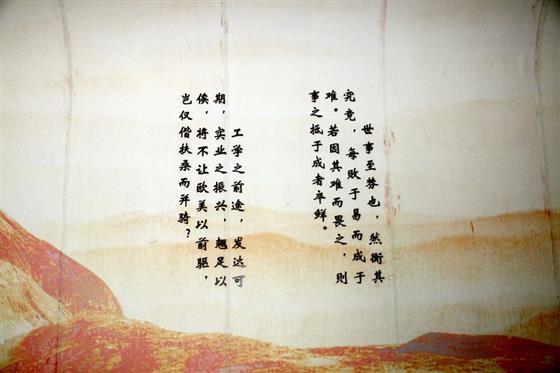 世事至棼也，然衡其
究竟，每败于易而成于
难。若因其难而畏之，则
事之抵于成者卒鲜。
工学之前途，发达可
期，实业之振兴，翘足以
俟，将不让欧美以前驱，
岂仅偕扶桑而并骑？